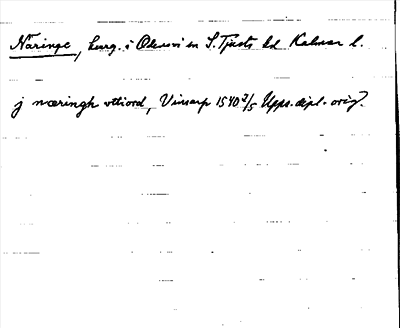 Näringe, herrg. i Odensvi sn S. Tjusts hd Kalmar l.
j næringh vttiord, Vinsarp 1540 2/5 Upps. dipl. orig.